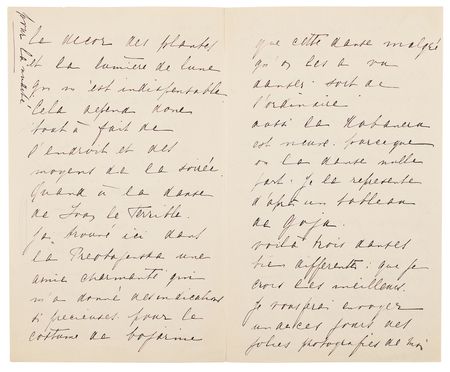 pour la
Le decor des plantes
et la lumière de lune
qui m'est indispensable
Cela depend donc
tout à fait de
l'endroit et des
moyens de la soirée.
Quand à la danse
de Ivan le Terrible.
J'ai trouvé ici dans
la une
amie charmante qui
m'a donné des indications
si precieuses pour le
costume de bojarine
que cette danse malgré
qu'on les a vu
danser sort de
l'ordinaire
aussi la Habanera
est neuve. parceque
on la danse nulle
part. Je la represente
d'après un tableau
de Goja.
voilà trois danses
bien differentes: que je
crois les meilleurs.
Je vous envoyer
un de ces jours des
jolies photografies de moi